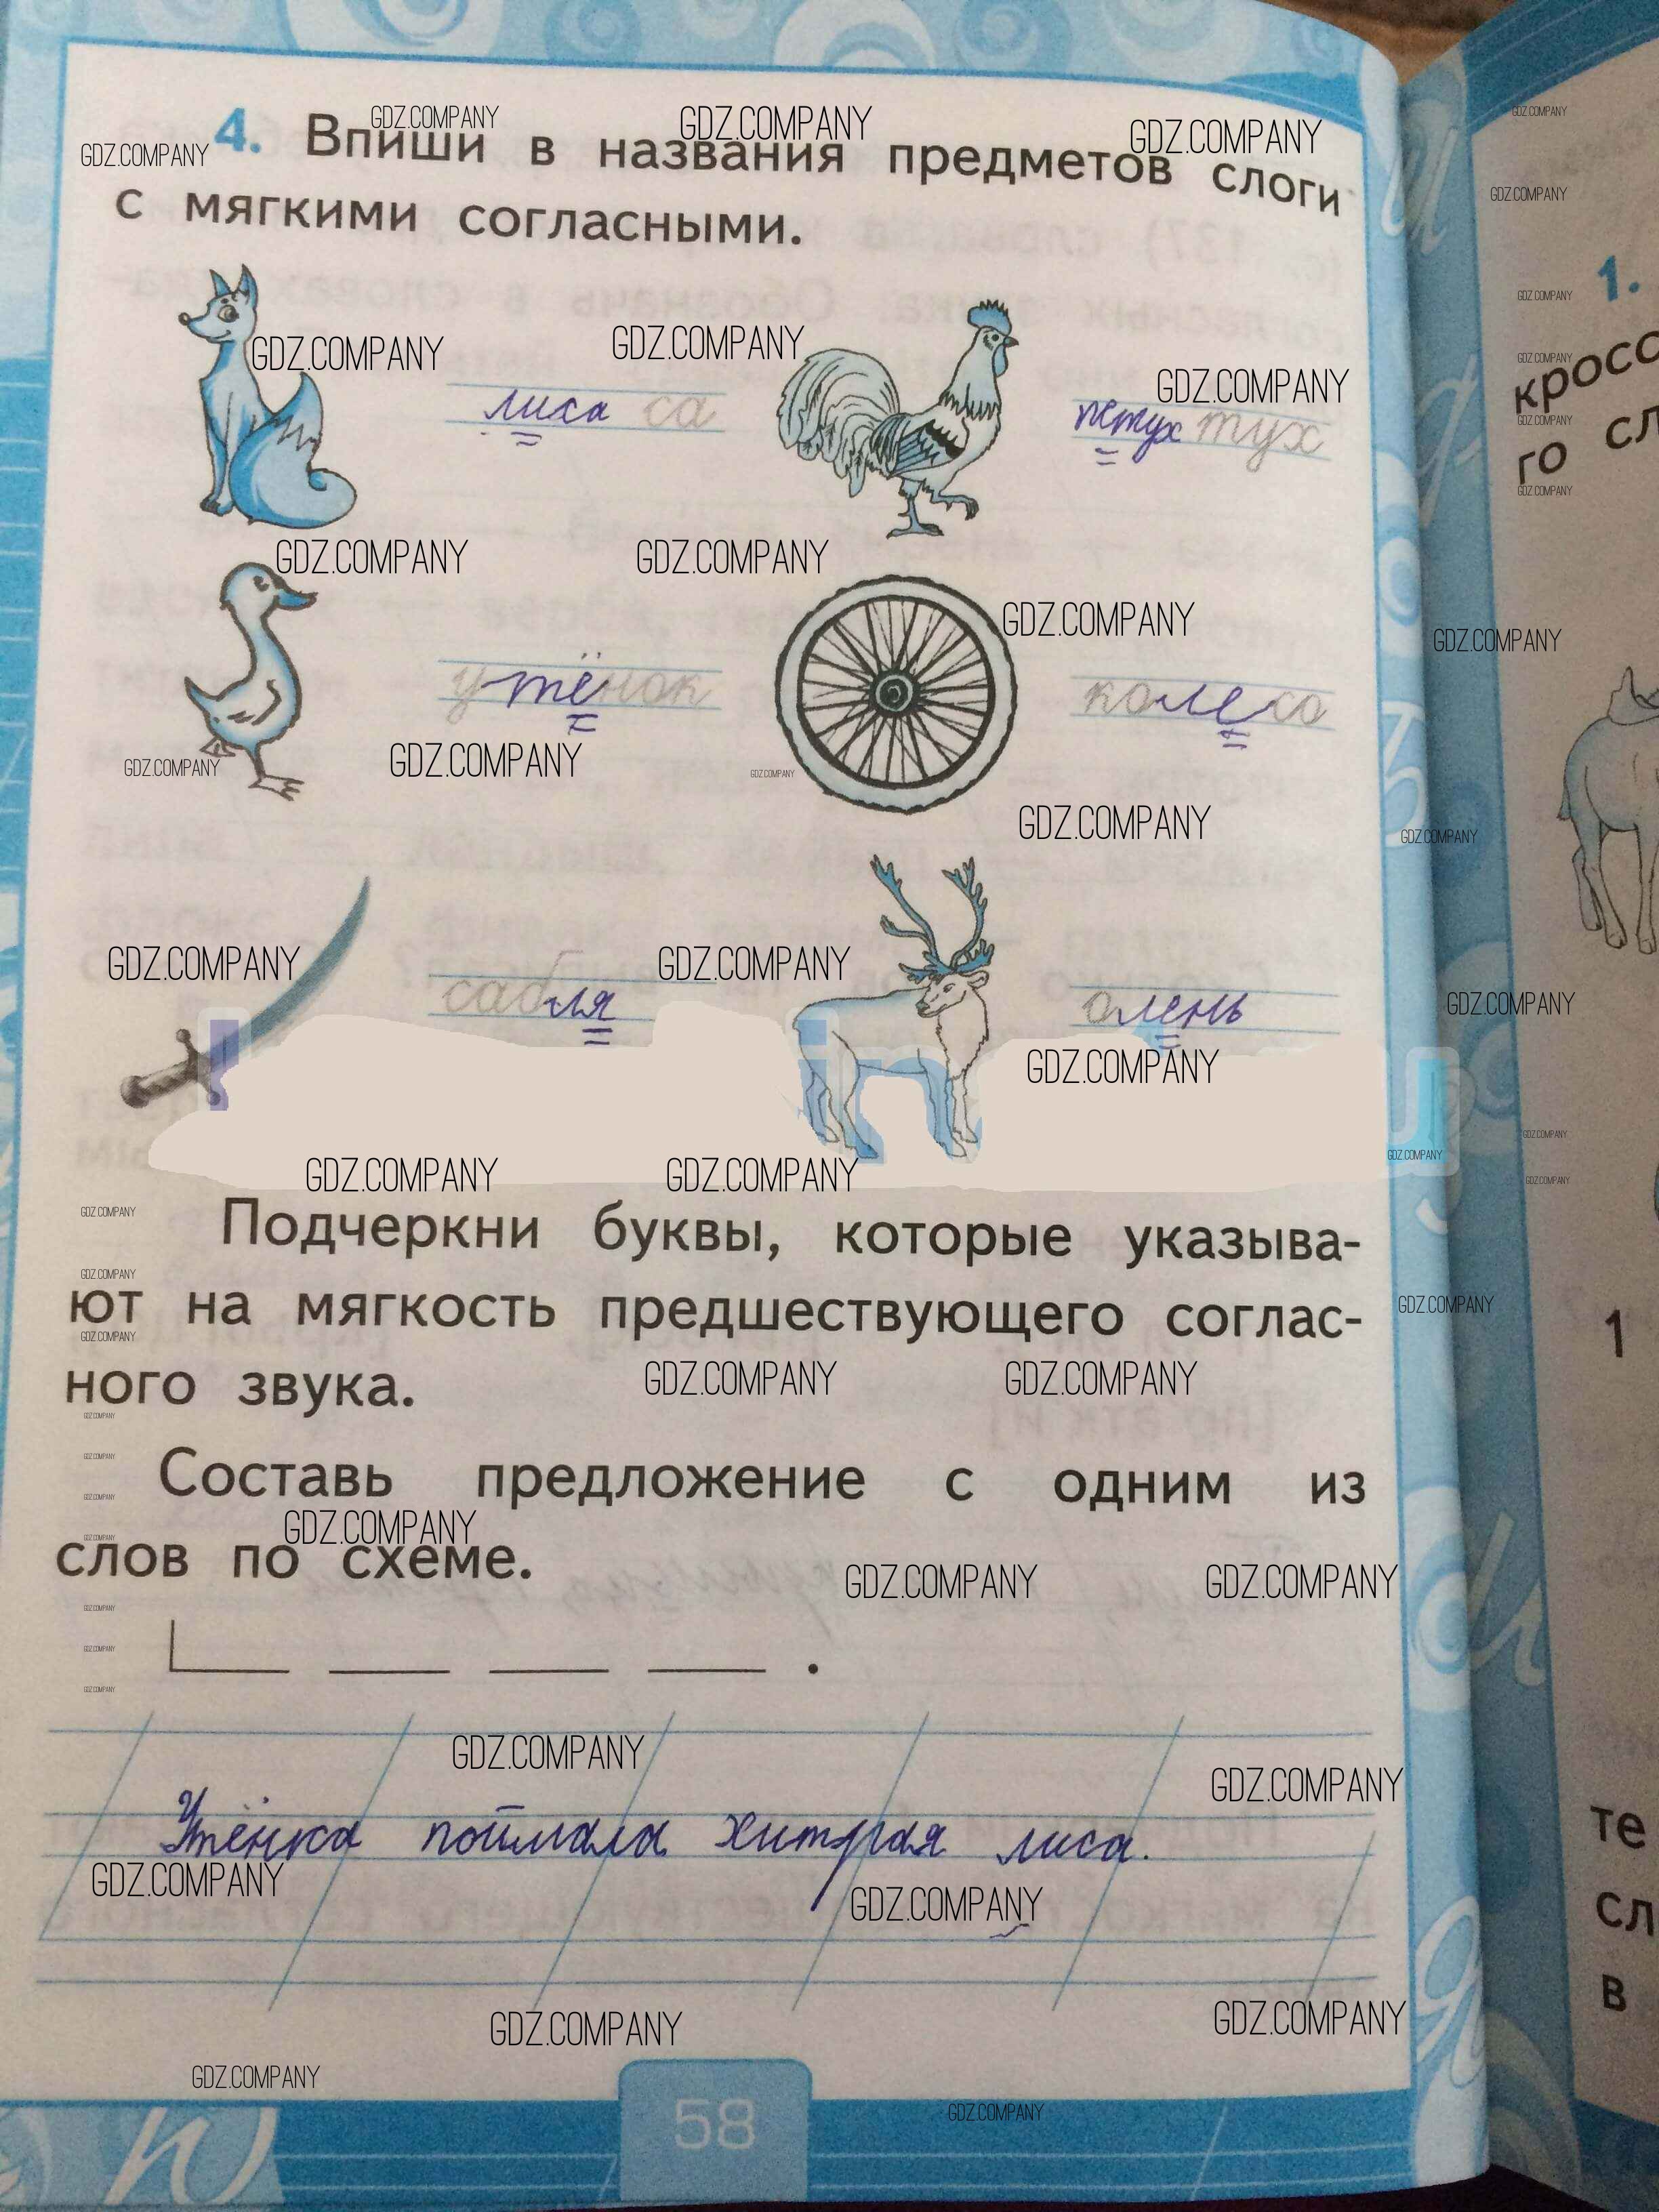 4. Впиши в названия предметов слоги
с мягкими согласными.
лиса са
петух тух
утёнок
колесо
сабля
олень
Подчеркни буквы, которые указыва-
ют на мягкость предшествующего соглас-
ного звука.
Составь предложение с одним из
слов по схеме.
Утёнка поймала хитрая лиса.
58
1.
кросс
го сл
1
те
сл
в
GDZ.COMPANY